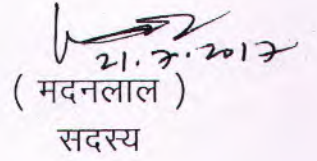 21.7.2017
( मदनलाल )
सदस्य